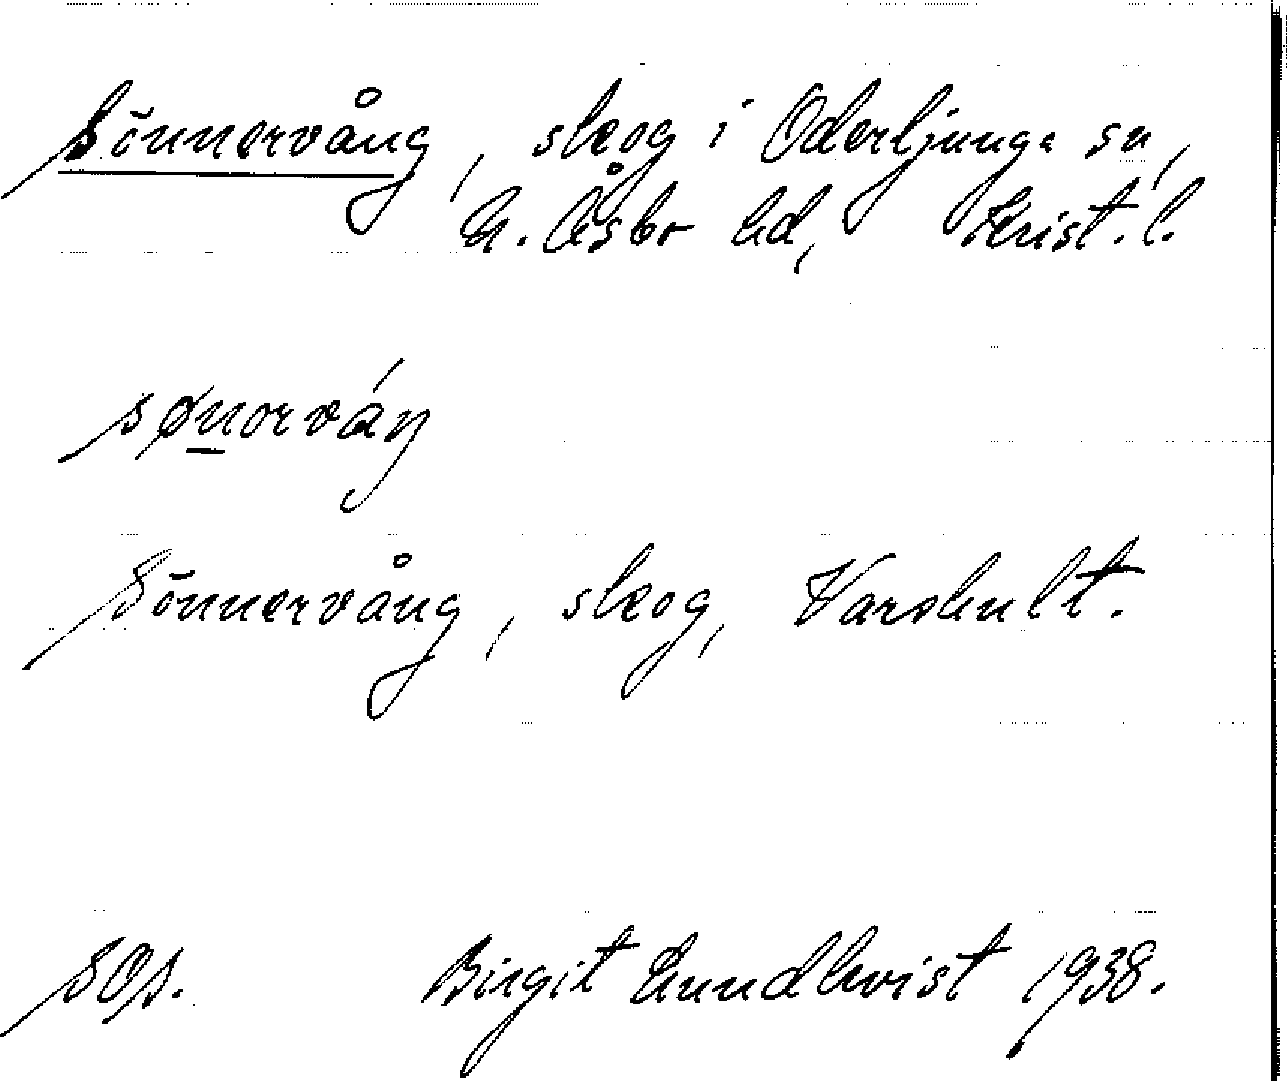 Sönnervång, skog i Oderljunga sn,
N. Åsbo hd, Krist. l.
sønorváŋ
Sönnervång, skog, Varshult.
SOp. Birgit Lundkvist 1938.